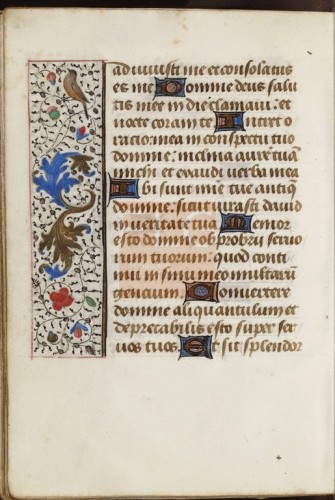 adiuuisti me et consolatus
es me Domine deus salu
tis mee in die clamaui: et
nocte coram te Intret o
racio: mea in conspectu tuo
domine: inclina aurē tuā
michi et exaudi uerba mea
Ubi sunt mie tue antiq̄
domine: sicut iurasti dauid
in ueritate tua Memor
esto domine obprobrij seruo
rum tuorum: quod conti
nui in sinu meo multarū
gencium Conuertere
domine aliquantulum et
deprecabilis esto super ser
uos tuos Et sit splendor